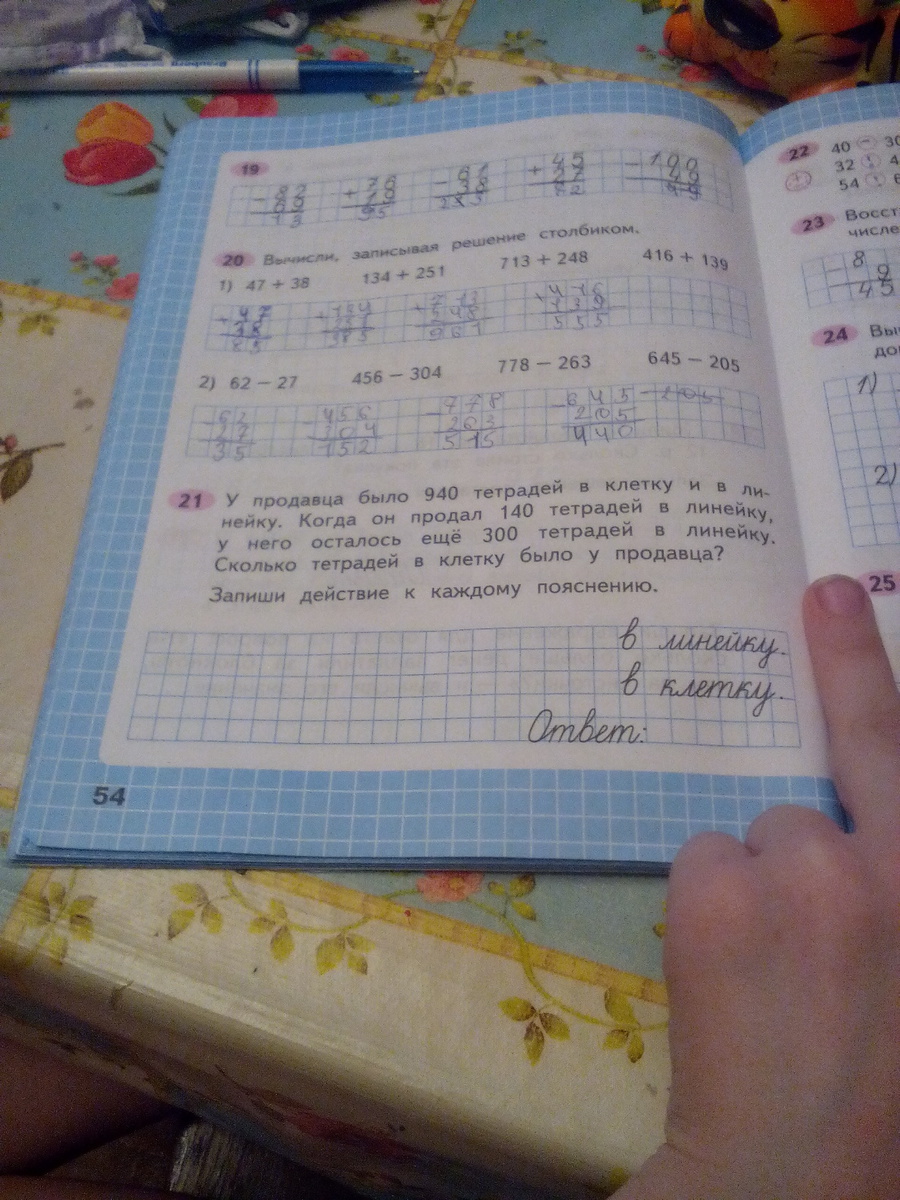 19
+ 45
− 100
95
20 Вычисли, записывая решение столбиком.
1) 47 + 38 134 + 251 713 + 248 416 + 139
+ 47 + 134 + 713 + 416
38 139
385 961 555
2) 62 − 27 456 − 304 778 − 263 645 − 205
− 62 − 456 − 778 − 645 − 205
27 304 263 205
35 152 515 440
21 У продавца было 940 тетрадей в клетку и в ли-
нейку. Когда он продал 140 тетрадей в линейку,
у него осталось ещё 300 тетрадей в линейку.
Сколько тетрадей в клетку было у продавца?
Запиши действие к каждому пояснению.
в линейку.
в клетку.
Ответ:
54
22 40 − 30
32
54
23 Восст
числе
− 8
9
45
24 Вы
до
1)
2)
25